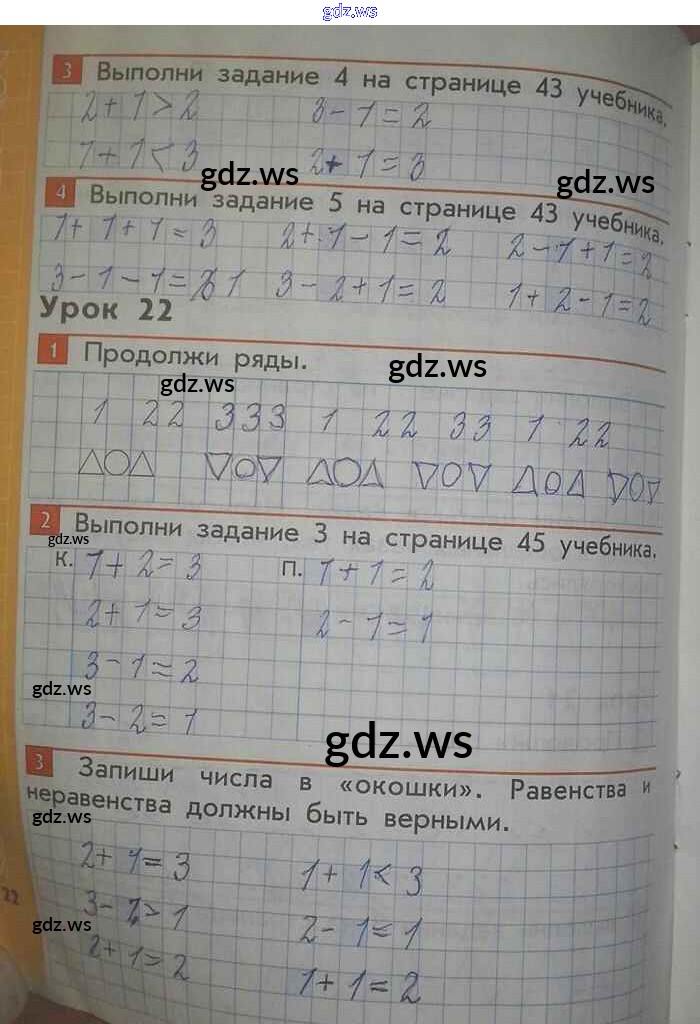 gdz.ws
3 Выполни задание 4 на странице 43 учебника.
2+1>2 3-1=2
1+1<3 2+1=3
gdz.ws gdz.ws
4 Выполни задание 5 на странице 43 учебника.
1+1+1=3 2+1-1=2 2-1+1=2
3-1-1=1 3-2+1=2 1+2-1=2
Урок 22
1 Продолжи ряды.
gdz.ws gdz.ws
1 22 333 1 22 33 1 22
2 Выполни задание 3 на странице 45 учебника.
gdz.ws
к. 1+2=3 п. 1+1=2
2+1=3 2-1=1
3-1=2
gdz.ws
3-2=1
gdz.ws
3 Запиши числа в «окошки». Равенства и
неравенства должны быть верными.
gdz.ws
2+1=3 1+1<3
3-1>1 2-1=1
22
gdz.ws
2+1=2 1+1=2
gdz.ws